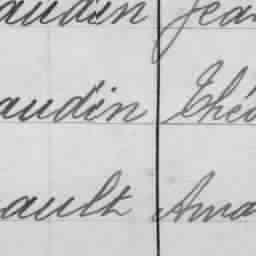 audin Jea
audin Théo
ault Ama